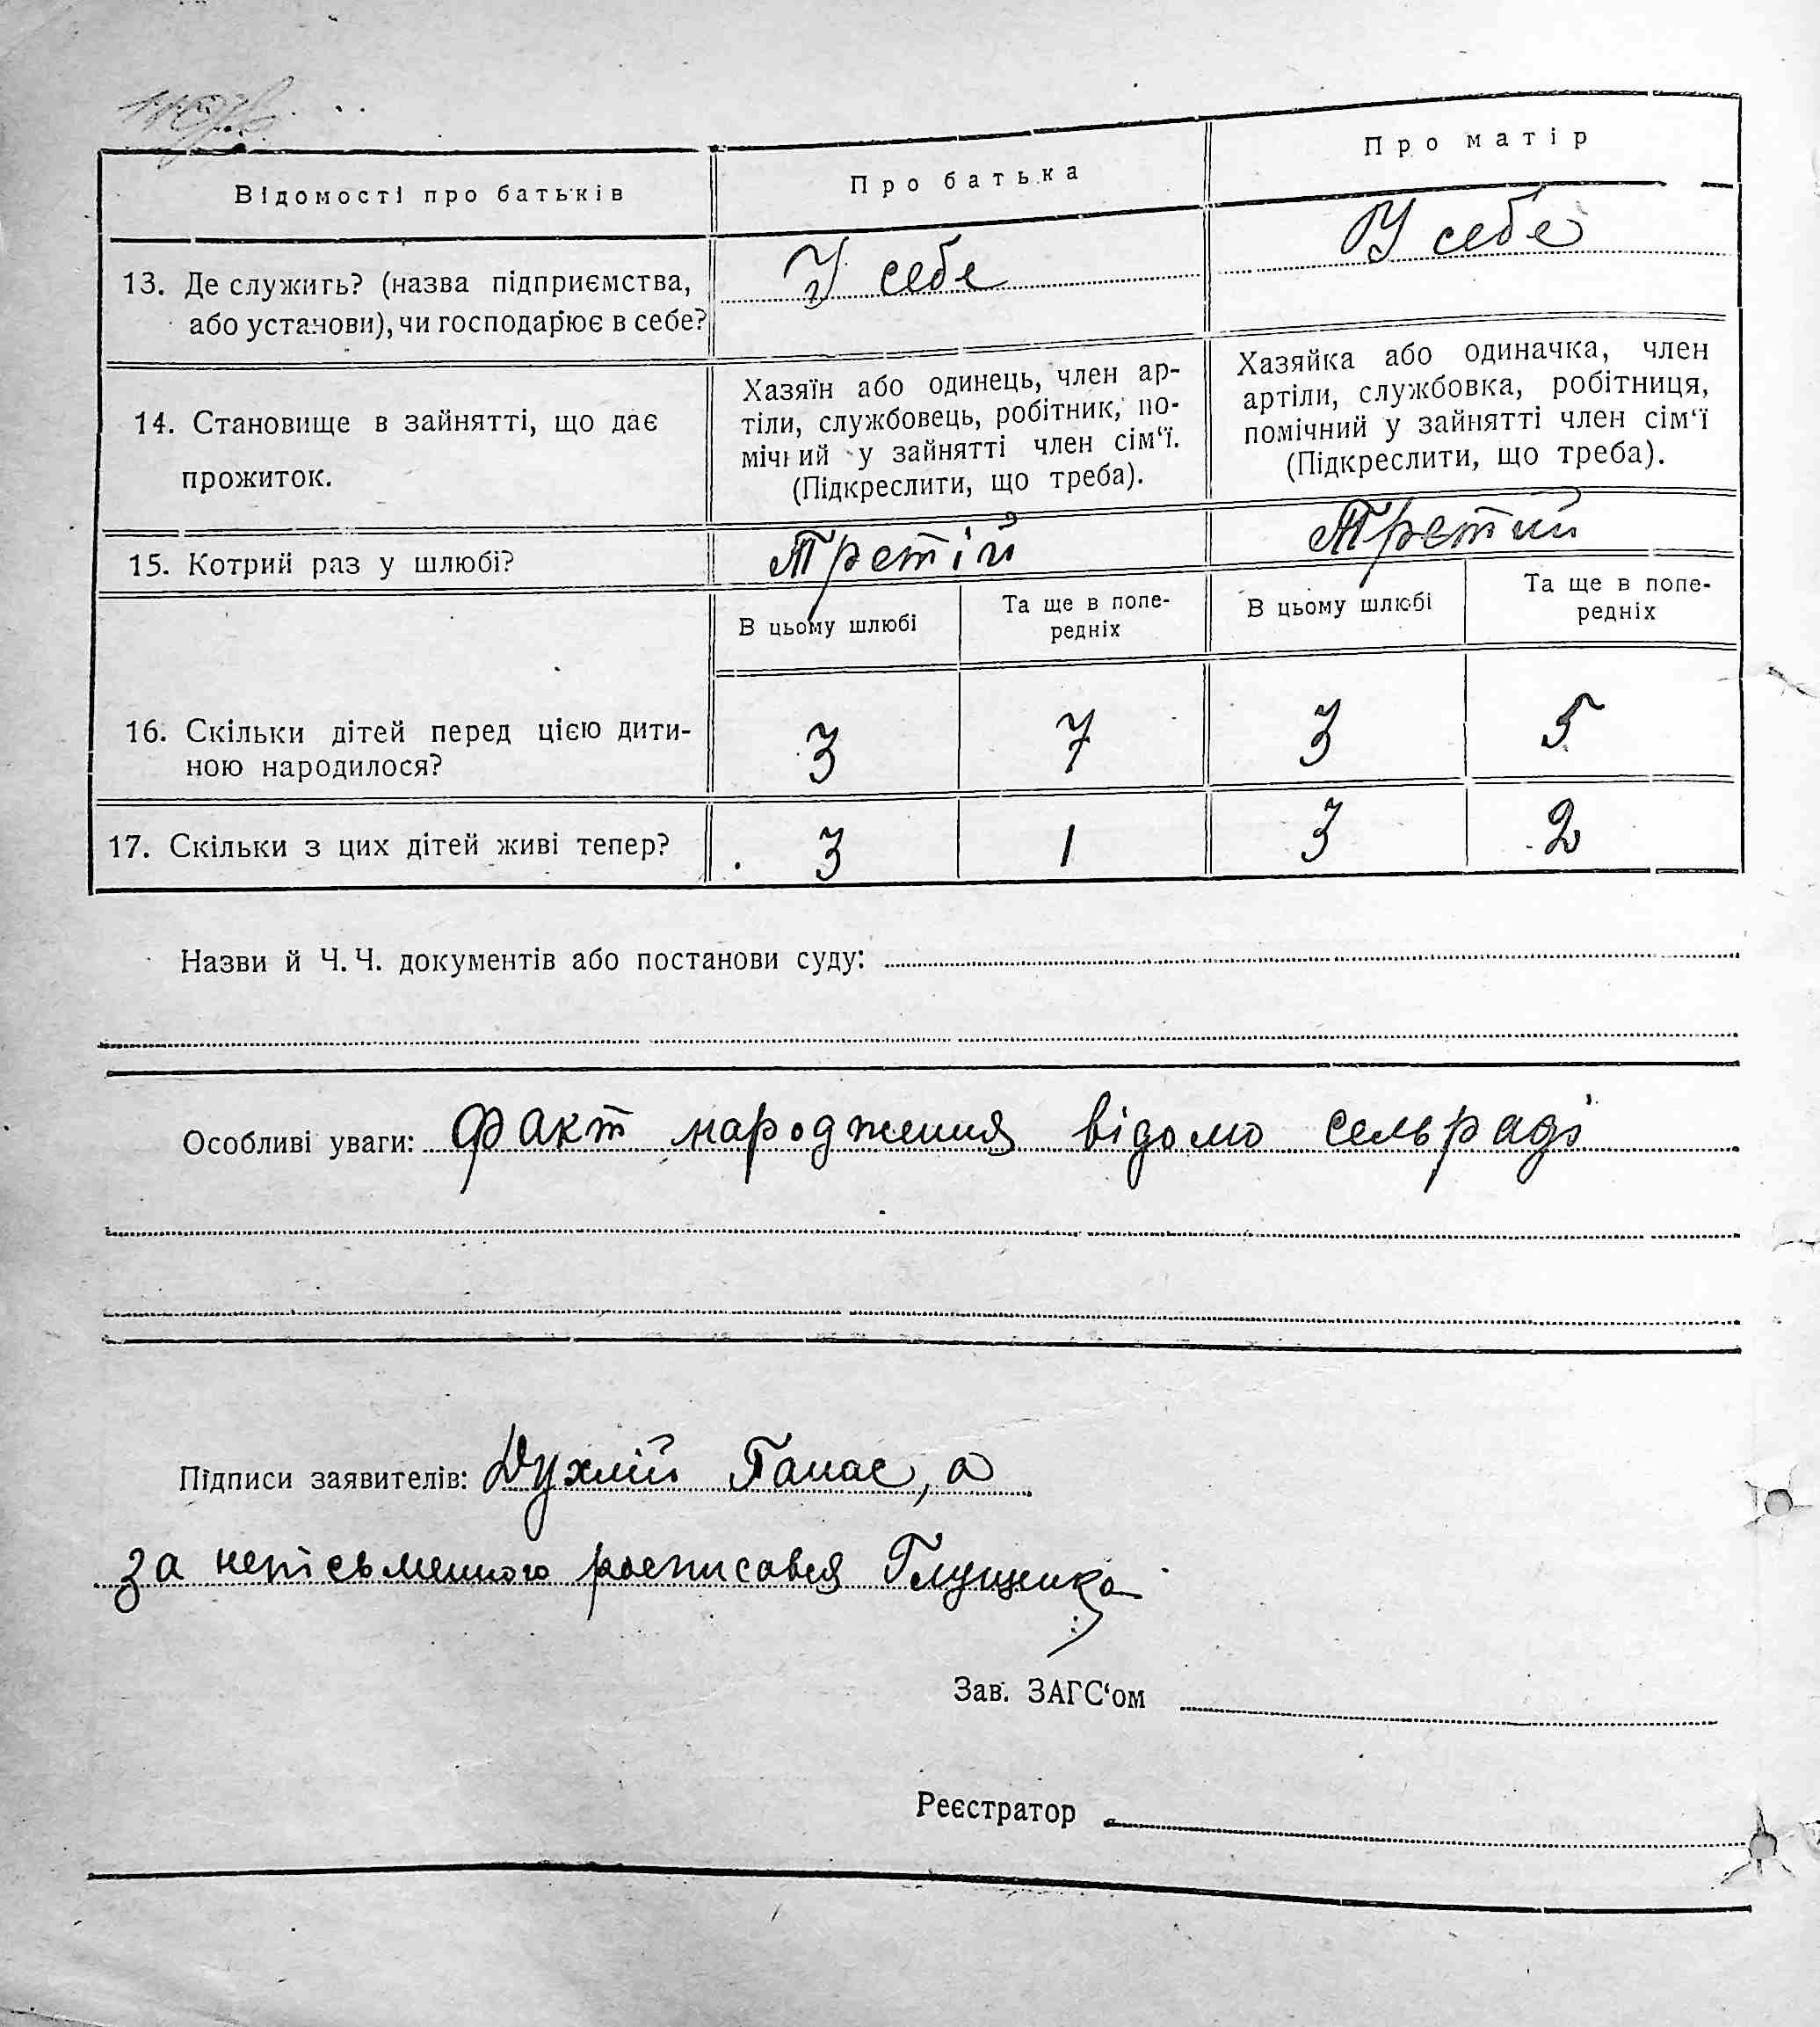 Відомості про батьків
Про батька
Про матір
13. Де служить? (назва підприємства,
або установи), чи господарює в себе?
У себе
У себе
14. Становище в зайнятті, що дає
прожиток.
Хазяїн або одинець, член ар-
тіли, службовець, робітник, по-
мічний у зайнятті член сім‘ї.
(Підкреслити, що треба).
Хазяйка або одиначка, член
артіли, службовка, робітниця,
помічний у зайнятті член сім‘ї
(Підкреслити, що треба).
15. Котрий раз у шлюбі?
Третій
Третий
В цьому шлюбі
Та ще в попе-
редніх
В цьому шлюбі
Та ще в попе-
редніх
16. Скільки дітей перед цією дити-
ною народилося?
3 7 3 5
17. Скільки з цих дітей живі тепер?
3 1 3 2
Назви й Ч.Ч. документів або постанови суду:
Особливі уваги: Факт народження відомо сельраді
Підписи заявителів: Духлій Панас, а
за непісьменного росписався Глущенко
Зав. ЗАГС‘ом
Реєстратор